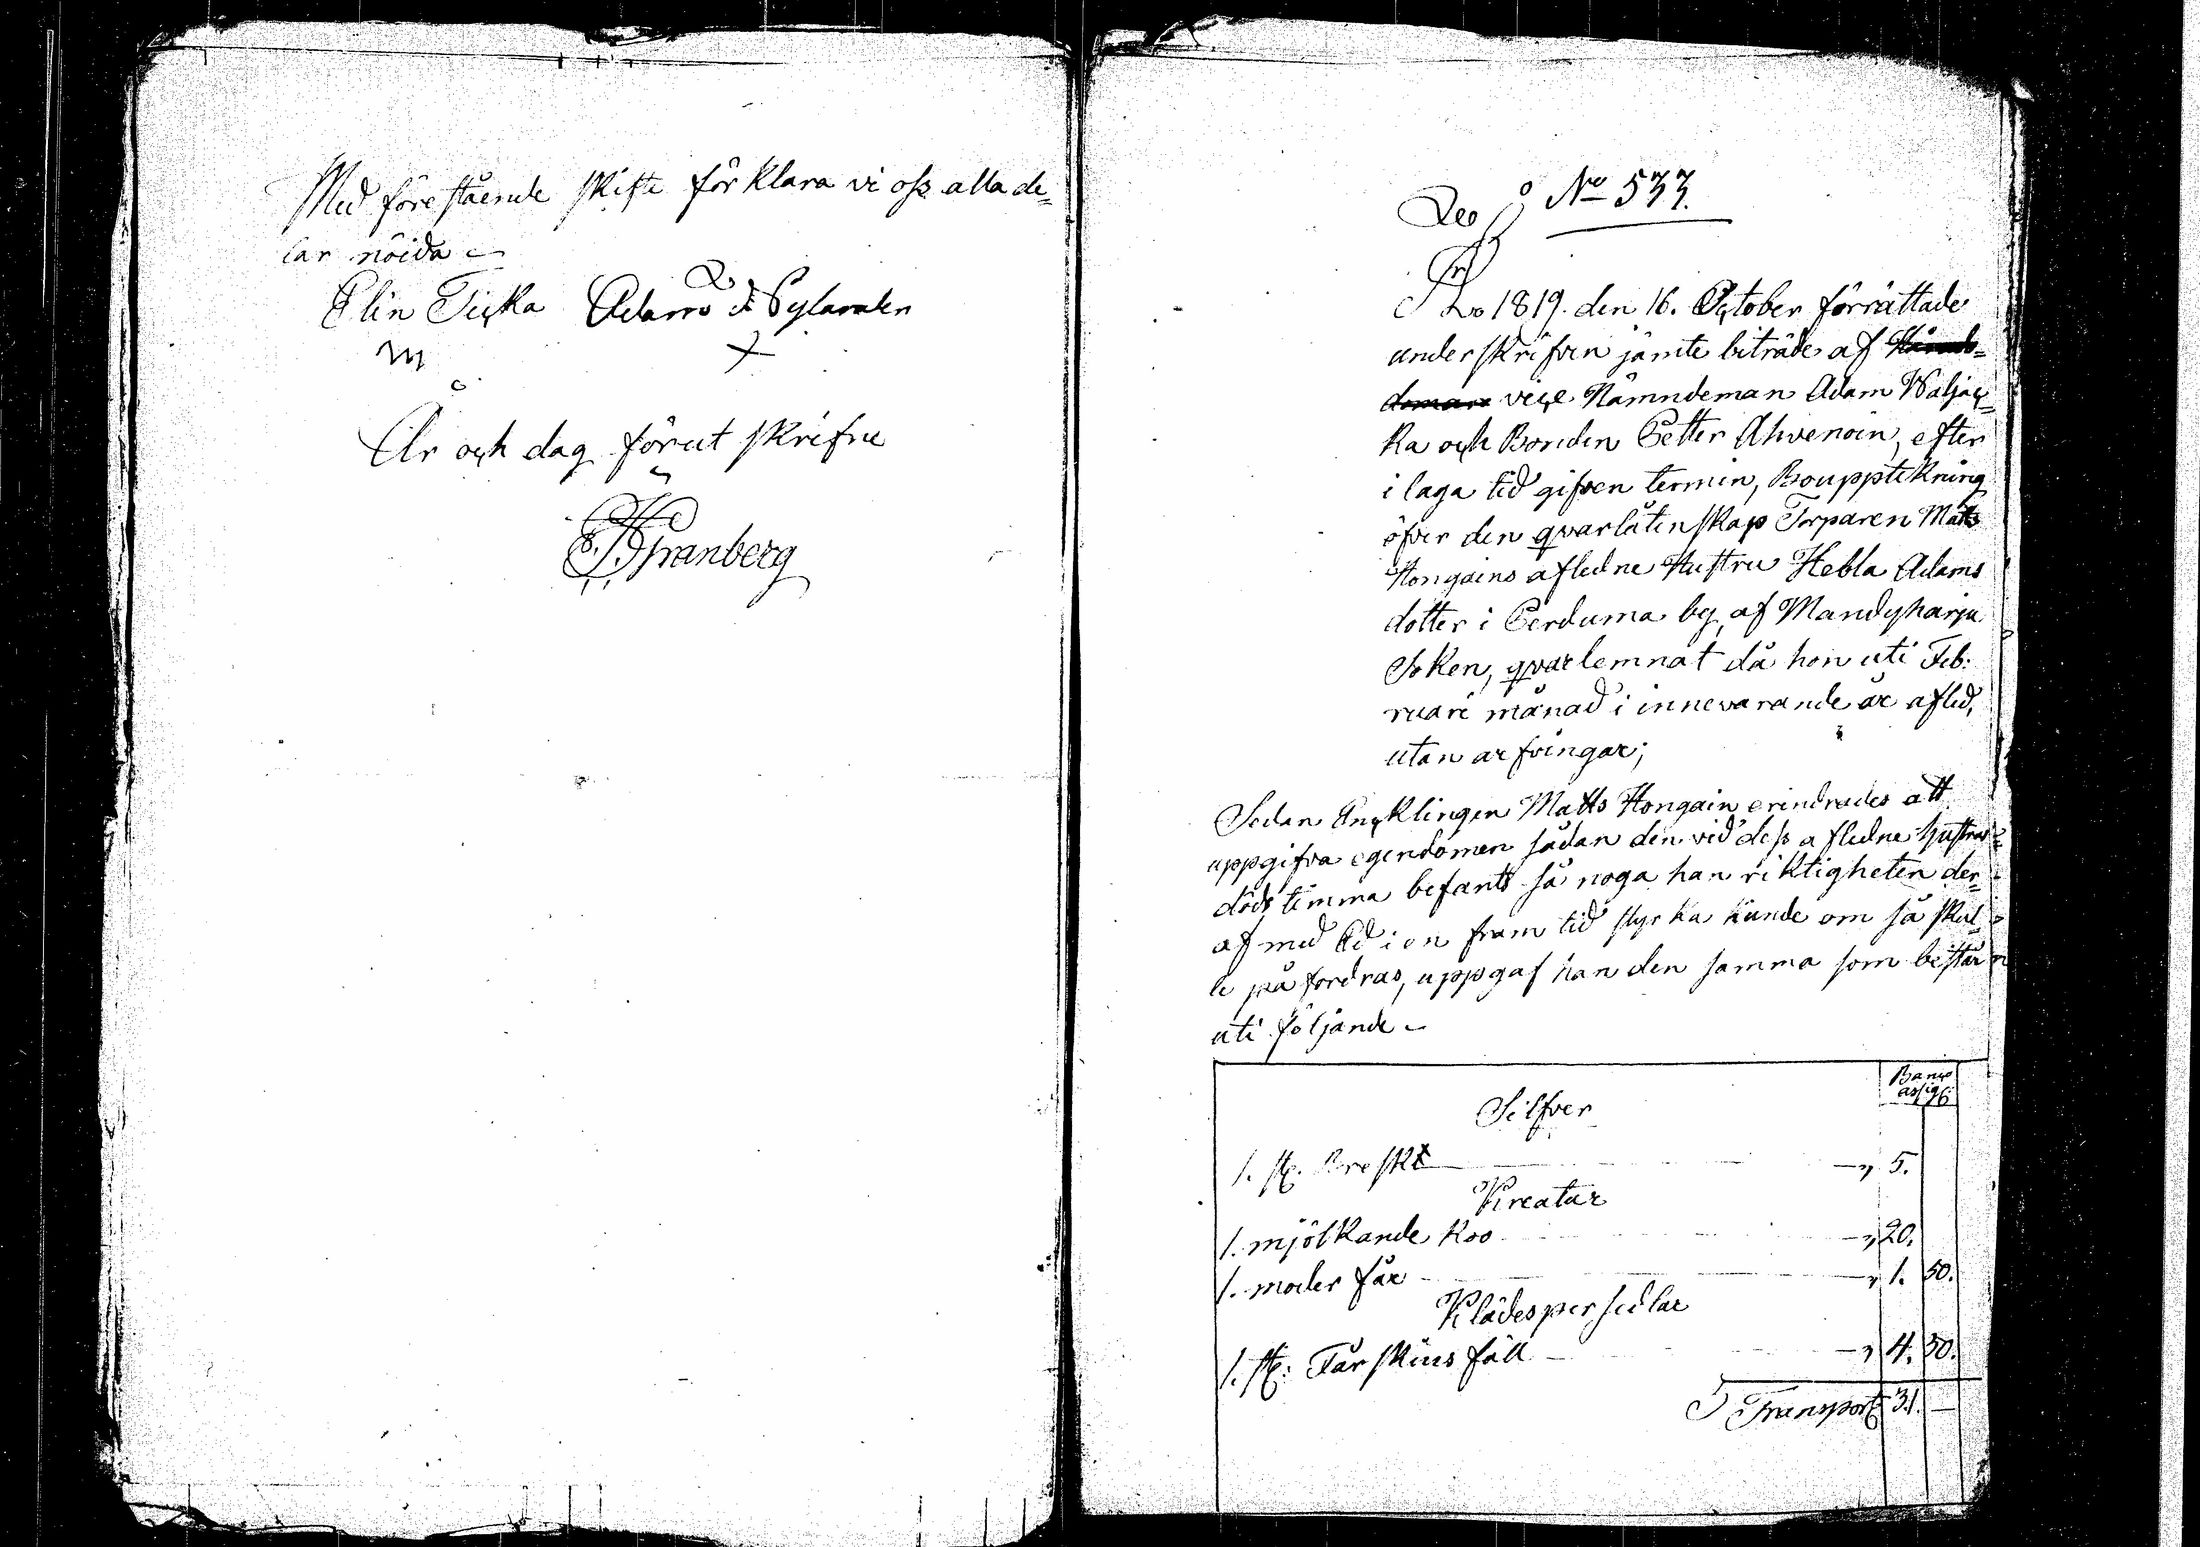 Med förestående skifte förklara vi oss alla de=
lar nöida
Elin Ticka Adam Pylander
År och dag förut skrifne
Granberg
No 533.
Ao 1819. den 16. October förrättade
underskrifven jämte biträde af Härads=
domare vice Nämndeman Adam Waljac=
ka och Bonden Petter Ahvenoin, efter
i laga tid gifven termin, Bouppteckning
öfver den qvarlåtenskap Torparen Matts
Hongains afledne Hustru Hebla Adams
dotter i Perduma by, af Mandyharju
Soken, qvarlemnat då hon uti Feb:
ruari månad i innevarande år afled,
utan arfvingar;
Sedan Encklingen Matts Hongain erindrades att
uppgifva egendomen sådan den vid dess afledne hustrus
dödstimma befants så noga han riktigheten der=
af med Ed i en framtid styrka kunde om så skul=
le påfordras, uppgaf han den samma som består
uti följande
Banco
assig:
Silfver
1. st. Breske 5.
Kreatur
1. mjölkande Koo 20.
1. moder får 1. 50.
Klädespersedlar
1. st: Fårskins fäll 4. 50.
Transport 31. —